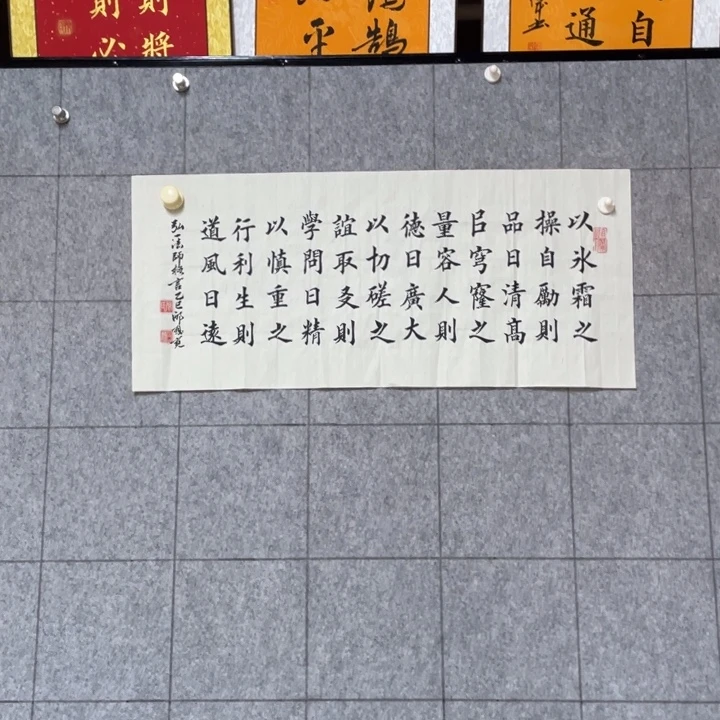 自
通
鵠
平
則將
則必
以氷霜之
操自勵則
品日清髙
㠯穹窿之
量容人則
德日廣大
以切磋之
誼取友則
學問日精
以慎重之
行利生則
道風日遠
弘一法師格言乙巳邱